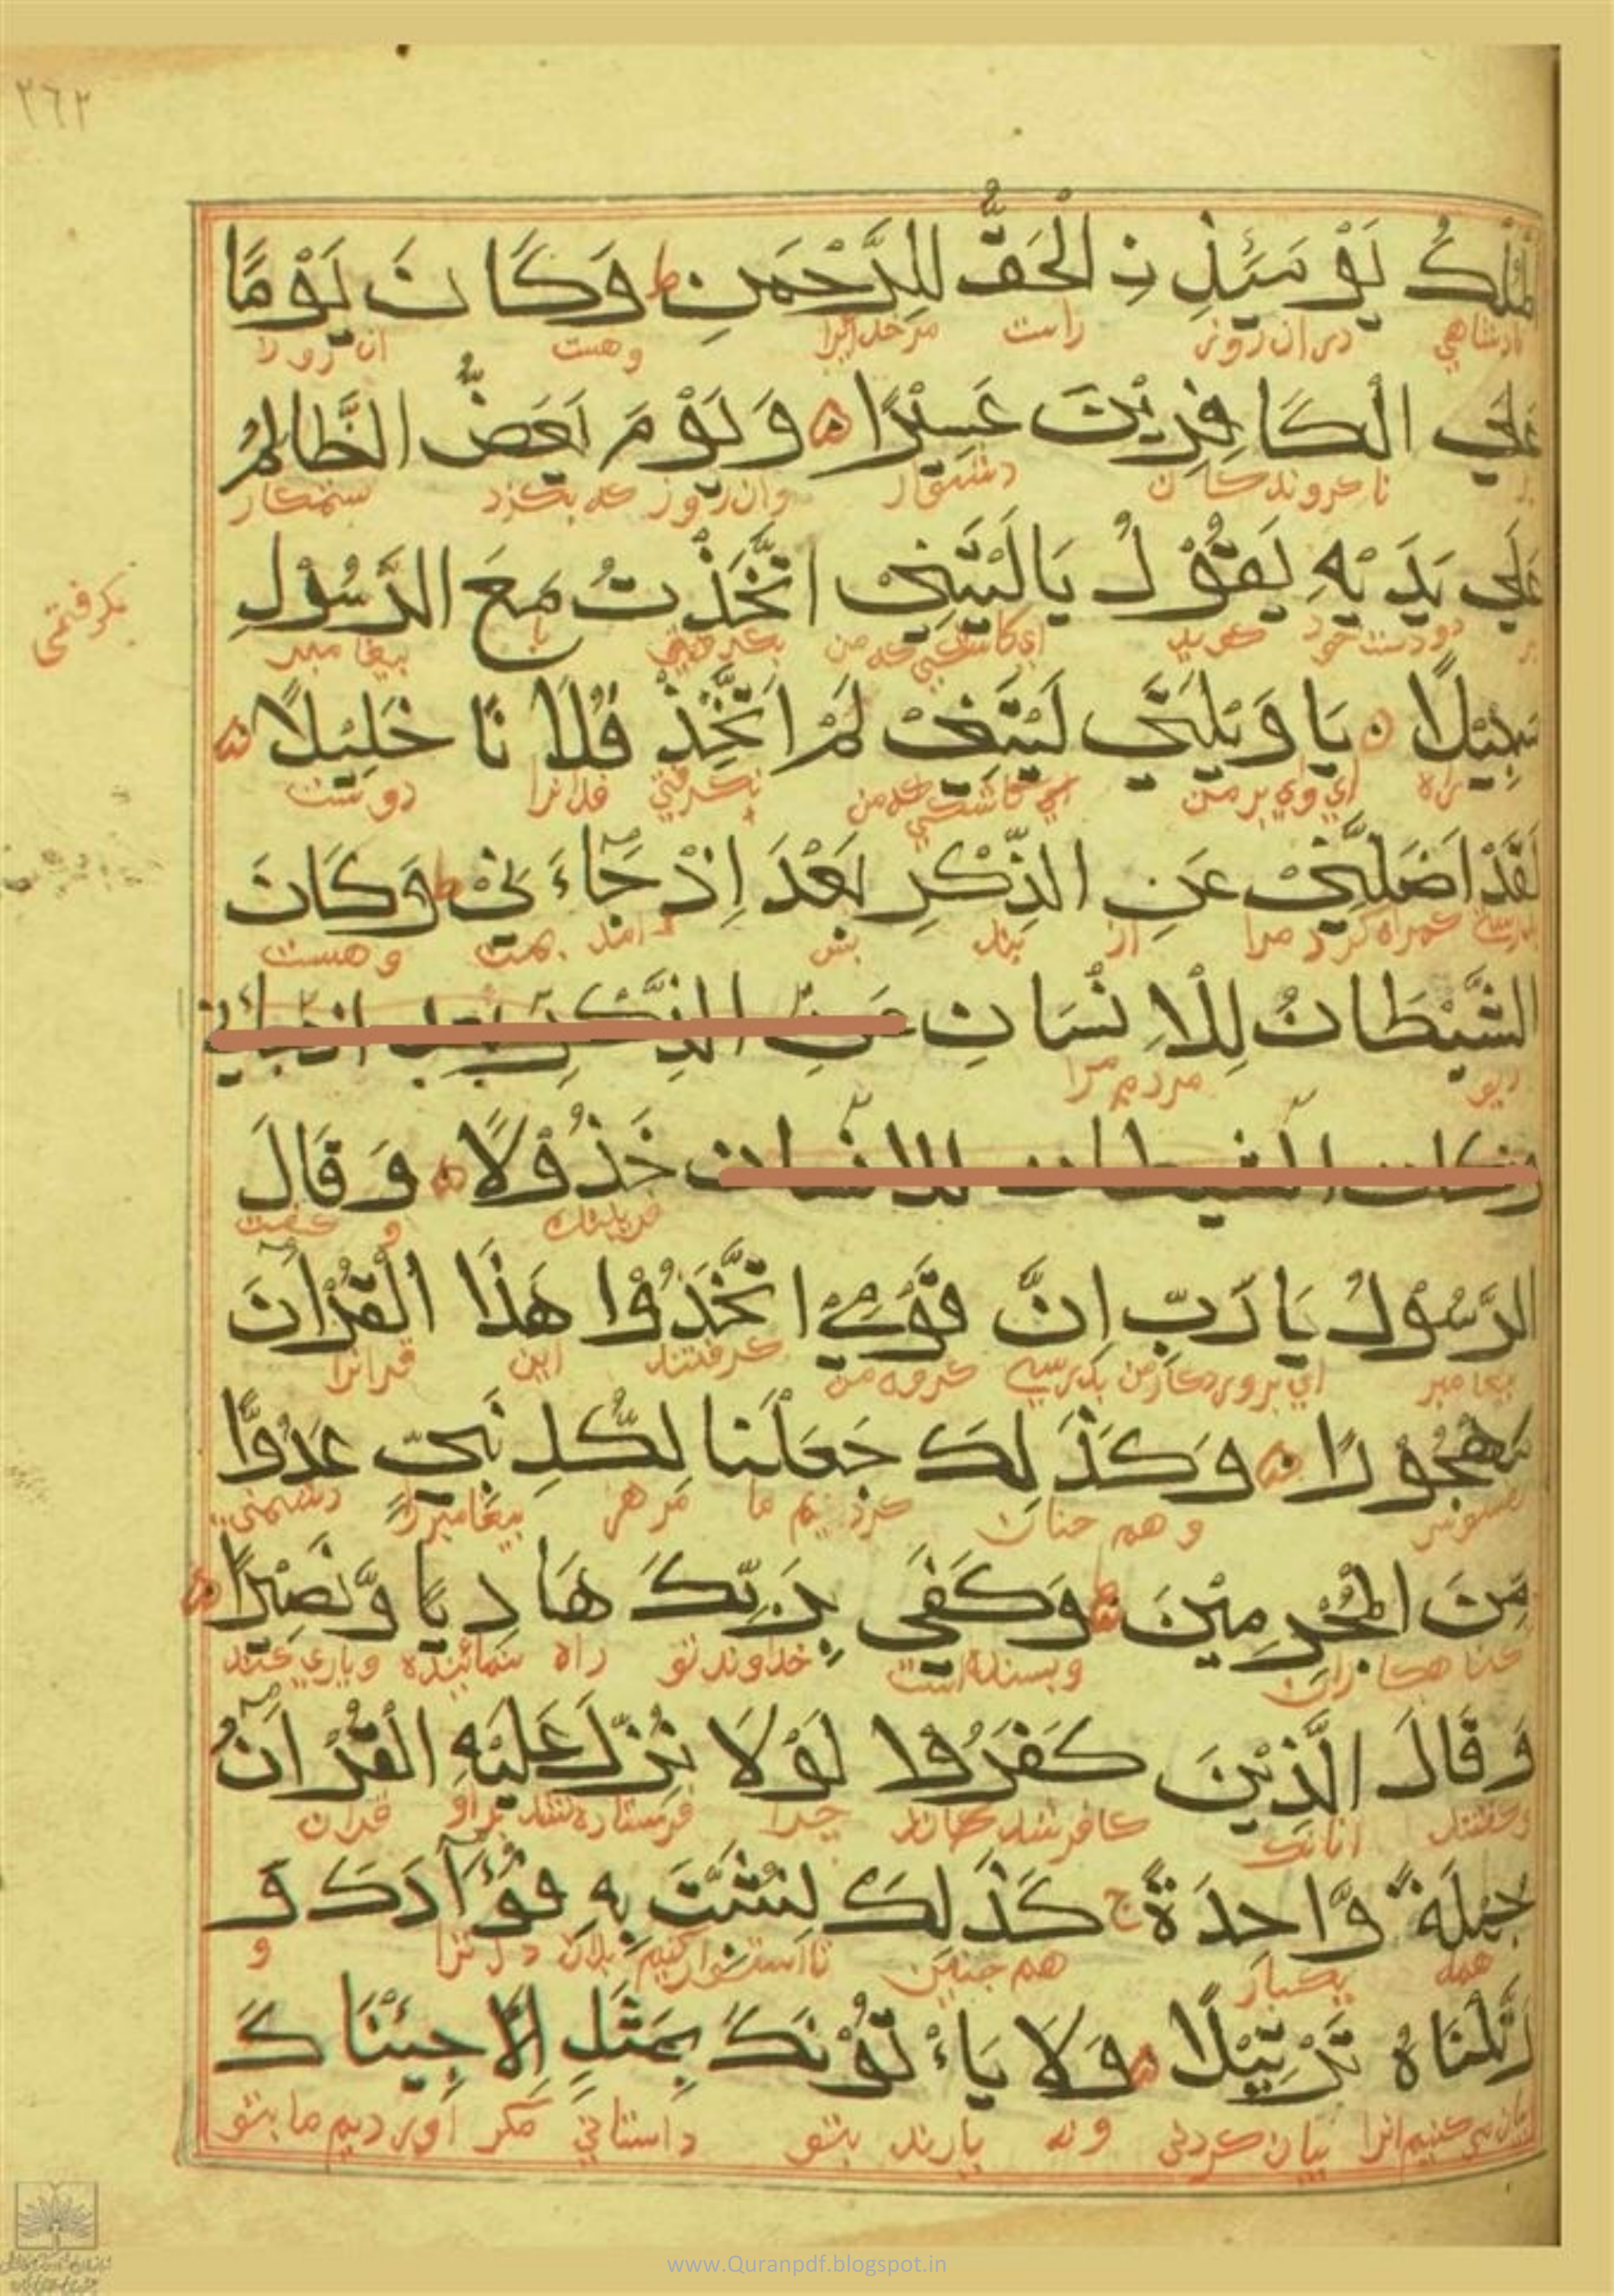 ٢٦٢
اَلْمُلْكُ يَوْمَئِذِ نِ الْحَقُّ لِلرَّحْمٰنِ ط وَكَانَ يَوْمًا
پادشاهي دران روز راست مرخدايرا وهست ان روز
عَلَي الْكَافِرِيْنَ عَسِيْرًا وَيَوْمَ يَعَضُّ الظَّالِمُ
بر ناكروندكان دشوار وان روز كه بكزد ستمكار
عَلَي يَدَيْهِ يَقُوْلُ يَالَيْتَنِيْ اتَّخَذْتُ مَعَ الرَّسُوْلِ
بر دودست خود كويد اي كاشكي كه من بكرفتمي با پيغامبر
بكرفتمي
سَبِيْلًا يَا وَيْلَتَي لَيْتَنِيْ لَمْ اَتَّخِذْ فُلَانًا خَلِيْلًا
راه اي واي بر من اي كاشكي كه من نكرفتمي فلانرا دوست
لَقَدْ اَضَلَّنِيْ عَنِ الذِّكْرِ بَعْدَ اِذْ جَآءَنِيْ ط وَكَانَ
كمراه كرد مرا از پند پس امد بمن وهست
الشَّيْطَانُ لِلْاِنْسَانِ عَنِ الذِّكْرِ بعد اذ جائني
ديو مردم را
وكان الشيطان للانسان خَذُوْلًا وَقَالَ
و كفت
الرَّسُوْلُ يَارَبِّ اِنَّ قَوْمِي اتَّخَذُوْا هَذَا الْقُرْآنَ
پيغامبر اي پروردكار من بدرستي كروه من كرفتند اين قرانرا
مَهْجُوْرًا وَكَذَلِكَ جَعَلْنَا لِكُلِّ نَبِيٍّ عَدُوًّا
وهم چنان كرديم ما مر هر پيغامبررا دشمني
مِّنَ الْمُجْرِمِيْنَ وَكَفَي بِرَبِّكَ هَادِيًا وَّنَصِيْرًا
كناهكاران وبسنده است خداوند تو راه نماينده وياري كننده
وَقَالَ الَّذِيْنَ كَفَرُوْا لَوْلَا نُزِّلَ عَلَيْهِ الْقُرْآنُ
وكفتند انانك كافر شدند چرا فرستاده نشد براو قران
جُمْلَةً وَّاحِدَةً ج كَذَلِكَ لِنُثَبِّتَ بِهِ فُؤَآدَكَ وَ
همه يكبار هم چنين تا استوار كنيم بدان دل ترا و
رَتَّلْنَاهُ تَرْتِيْلًا وَلَا يَاءْتُوْنَكَ بِمَثَلٍ اِلَّا جِئْنَاكَ
بيان كردني ونه يارند بتو داستاني مكر اورديم ما بتو
www.Quranpdf.blogspot.in